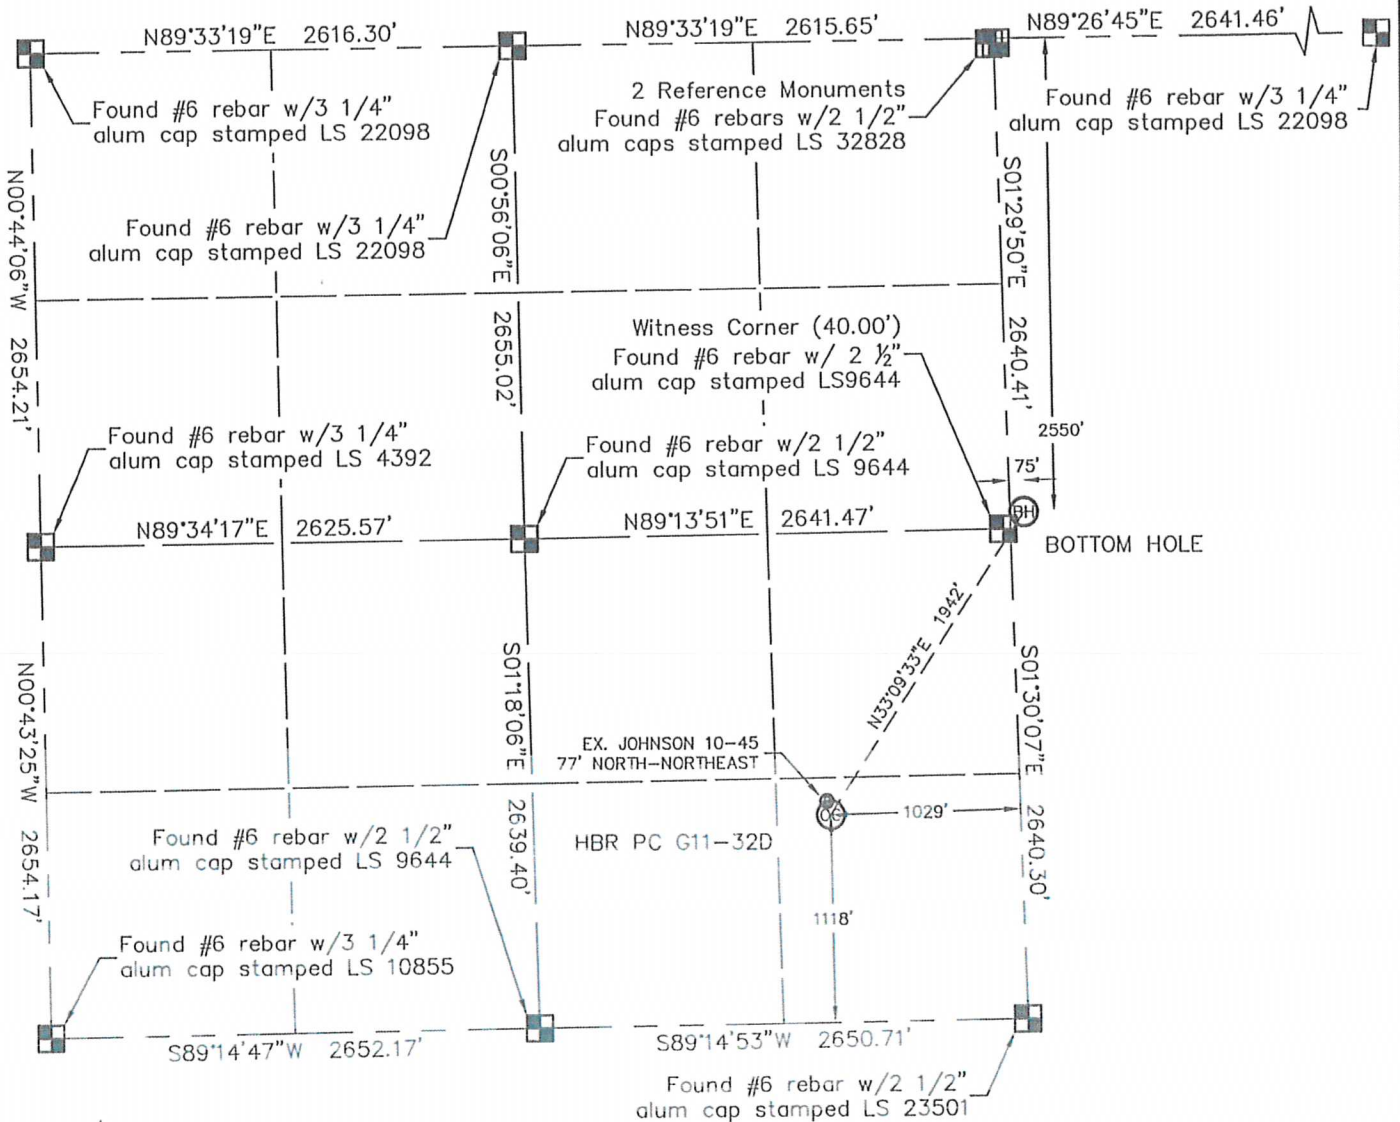 N89°33'19"E 2616.30'
N89°33'19"E 2615.65'
N89°26'45"E 2641.46'
Found #6 rebar w/3 1/4"
alum cap stamped LS 22098
2 Reference Monuments
Found #6 rebars w/2 1/2"
alum caps stamped LS 32828
Found #6 rebar w/3 1/4"
alum cap stamped LS 22098
Found #6 rebar w/3 1/4"
alum cap stamped LS 22098
N00°44'06"W 2654.21'
S00°56'06"E 2655.02'
S01°29'50"E 2640.41'
Witness Corner (40.00')
Found #6 rebar w/ 2 ½"
alum cap stamped LS9644
2550'
75'
Found #6 rebar w/3 1/4"
alum cap stamped LS 4392
Found #6 rebar w/2 1/2"
alum cap stamped LS 9644
N89°34'17"E 2625.57'
N89°13'51"E 2641.47'
BH
BOTTOM HOLE
N33°09'33"E 1942'
N00°43'25"W 2654.17'
S01°18'06"E 2639.40'
S01°30'07"E 2640.30'
EX. JOHNSON 10-45
77' NORTH-NORTHEAST
OG
1029'
HBR PC G11-32D
1118'
Found #6 rebar w/2 1/2"
alum cap stamped LS 9644
Found #6 rebar w/3 1/4"
alum cap stamped LS 10855
S89°14'47"W 2652.17'
S89°14'53"W 2650.71'
Found #6 rebar w/2 1/2"
alum cap stamped LS 23501